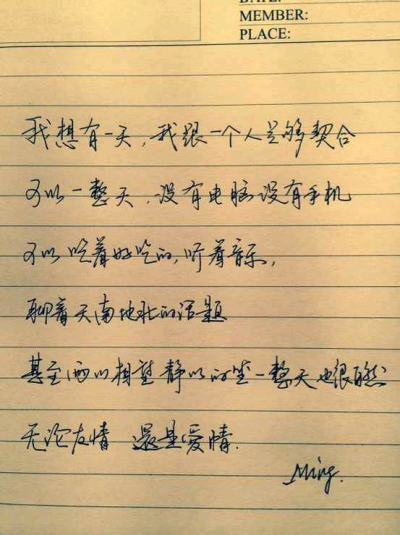 DATE:
MEMBER:
PLACE:
我想有一天，我跟一个人足够契合
可以一整天，没有电脑没有手机
可以吃着好吃的，听着音乐，
聊着天南地北的话题
甚至两以相望静以的坐一整天也很自然
无论友情 还是爱情.
Ming.